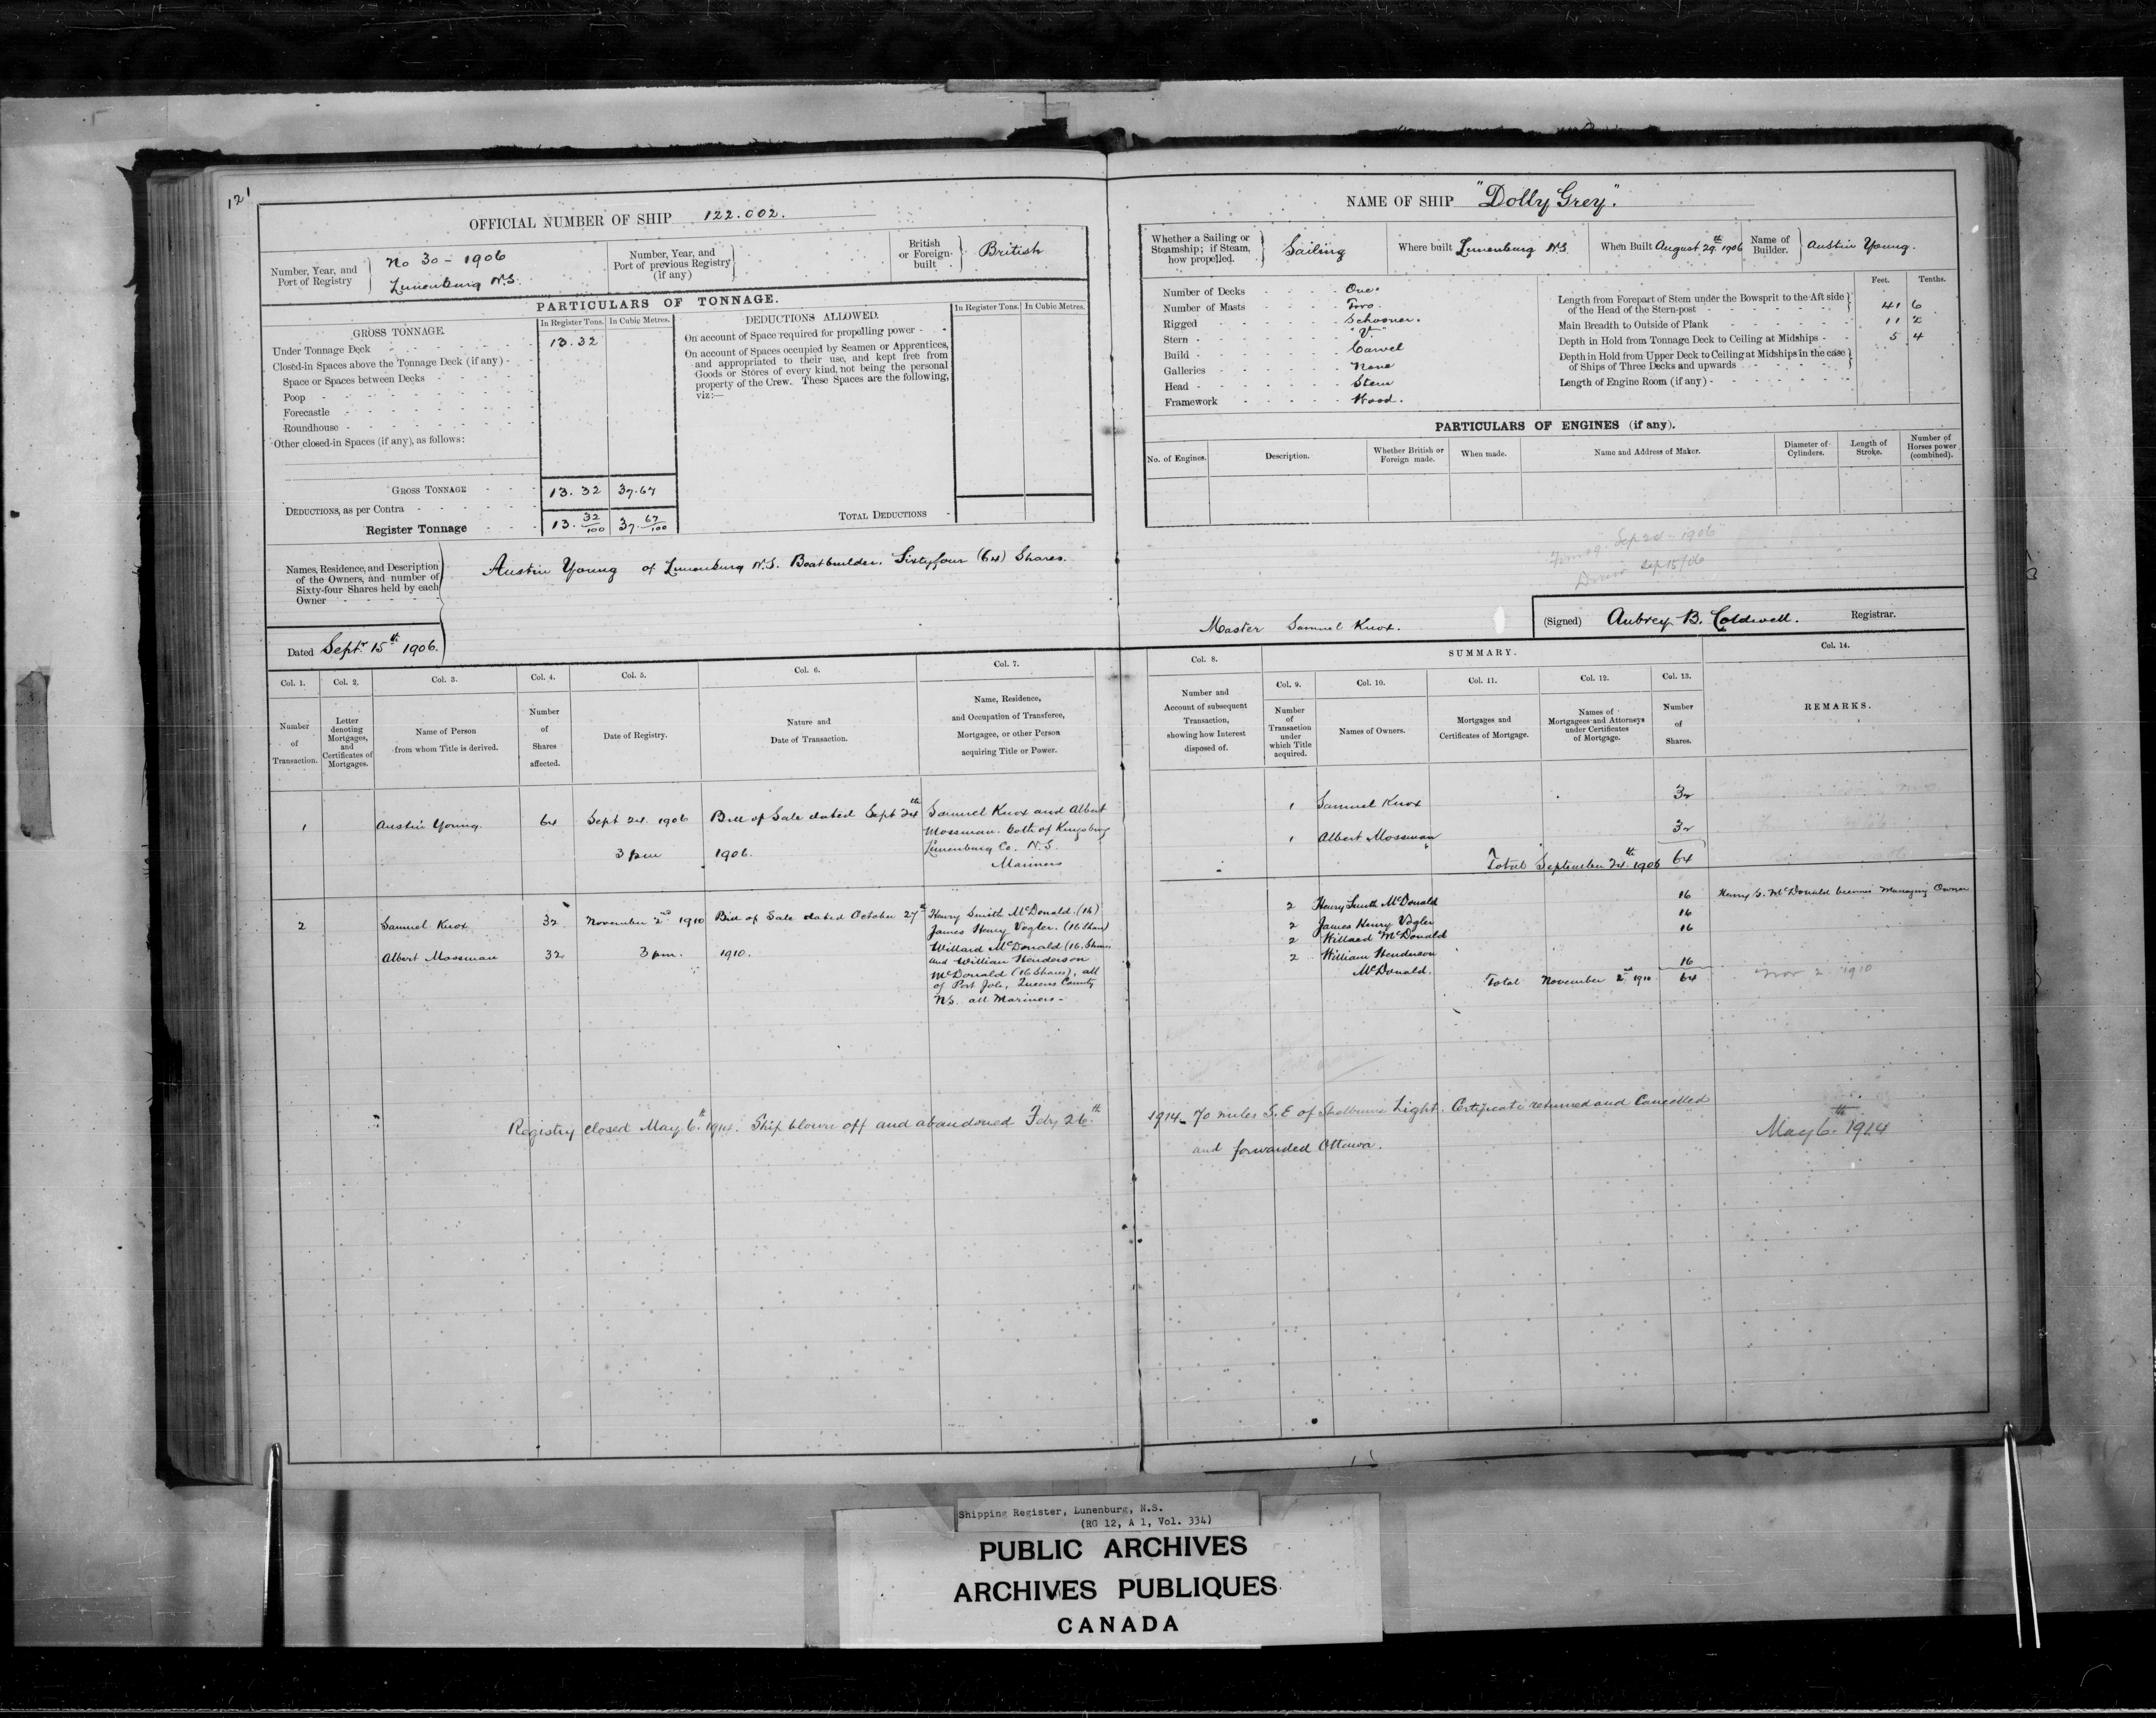 121
OFFICIAL NUMBER OF SHIP 122.002.
Number, Year, and Port of Registry
No 30 - 1906
Lunenburg N.S.
Number, Year, and Port of previous Registry (if any)
British or Foreign-built
British
PARTICULARS OF TONNAGE.
GROSS TONNAGE.
In Register Tons. In Cubic Metres.
Under Tonnage Deck 13.32
Closed-in Spaces above the Tonnage Deck (if any)
Space or Spaces between Decks
Poop
Forecastle
Roundhouse
Other closed-in Spaces (if any), as follows:
GROSS TONNAGE 13.32 37.67
DEDUCTIONS, as per Contra
Register Tonnage 13. 32/100 37. 67/100
DEDUCTIONS ALLOWED.
In Register Tons. In Cubic Metres.
On account of Space required for propelling power
On account of Spaces occupied by Seamen or Apprentices,
and appropriated to their use, and kept free from
Goods or Stores of every kind, not being the personal
property of the Crew. These Spaces are the following,
viz:—
TOTAL DEDUCTIONS
Names, Residence, and Description
of the Owners, and number of
Sixty-four Shares held by each
Owner
Austin Young of Lunenburg N.S. Boatbuilder. Sixtyfour (64) Shares.
Dated Septr 15th 1906.
NAME OF SHIP "Dolly Grey".
Whether a Sailing or
Steamship; if Steam,
how propelled.
Sailing
Where built Lunenburg N.S.
When Built August 29th 1906
Name of Builder. Austin Young.
Number of Decks One.
Number of Masts Two.
Rigged Schooner.
Stern "V"
Build Carvel
Galleries None
Head Stem
Framework Wood.
Feet. Tenths.
Length from Forepart of Stem under the Bowsprit to the Aft side
of the Head of the Stern-post 41 6
Main Breadth to Outside of Plank 11 2
Depth in Hold from Tonnage Deck to Ceiling at Midships 5 .4
Depth in Hold from Upper Deck to Ceiling at Midships in the case
of Ships of Three Decks and upwards
Length of Engine Room (if any)
PARTICULARS OF ENGINES (if any).
No. of Engines.
Description.
Whether British or Foreign made.
When made.
Name and Address of Maker.
Diameter of Cylinders.
Length of Stroke.
Number of Horses power (combined).
Sep 24 - 1906
Sep 15/06
Master Samuel Knox.
(Signed) Aubrey B. Coldwell. Registrar.
Col. 1. Number of Transaction.
Col. 2. Letter denoting Mortgages, and Certificates of Mortgages.
Col. 3. Name of Person from whom Title is derived.
Col. 4. Number of Shares affected.
Col. 5. Date of Registry.
Col. 6. Nature and Date of Transaction.
Col. 7. Name, Residence, and Occupation of Transferee, Mortgagee, or other Person acquiring Title or Power.
Col. 8. Number and Account of subsequent Transaction, showing how Interest disposed of.
SUMMARY.
Col. 9. Number of Transaction under which Title acquired.
Col. 10. Names of Owners.
Col. 11. Mortgages and Certificates of Mortgage.
Col. 12. Names of Mortgagees and Attorneys under Certificates of Mortgage.
Col. 13. Number of Shares.
Col. 14. REMARKS.
1 Austin Young. 64 Sept 24. 1906 Bill of Sale dated Sept 24th Samuel Knox and Albert
Mossman. both of Kingsburg
3 pm 1906. Lunenburg Co. N.S.
Mariners
1 Samuel Knox 32
1 Albert Mossman 32
Total September 24th 1906 64
2 Samuel Knox 32 November 2nd 1910 Bill of Sale dated October 27th Henry Smith McDonald. (16)
James Henry Vogler. (16 Shares)
Albert Mossman 32 3 pm. 1910. Willard McDonald (16. Shares
and William Henderson
McDonald (16 Shares), all
of Port Joli, Queens County
N.S. all Mariners-
2 Henry Smith McDonald 16 Henry S. McDonald becomes Managing Owner
2 James Henry Vogler 16
2 Willard McDonald 16
2 William Henderson
McDonald. 16
Total November 2nd 1910 64
Nov 2 1910
Registry closed May. 6th 1914. Ship blown off and abandoned Feby 26th 1914 - 70 miles S.E of Shelburne Light. Certificate returned and Cancelled
and forwarded Ottawa.
May 6th 1914
Shipping Register, Lunenburg, N.S.
(RG 12, A 1, Vol. 334)
PUBLIC ARCHIVES
ARCHIVES PUBLIQUES
CANADA